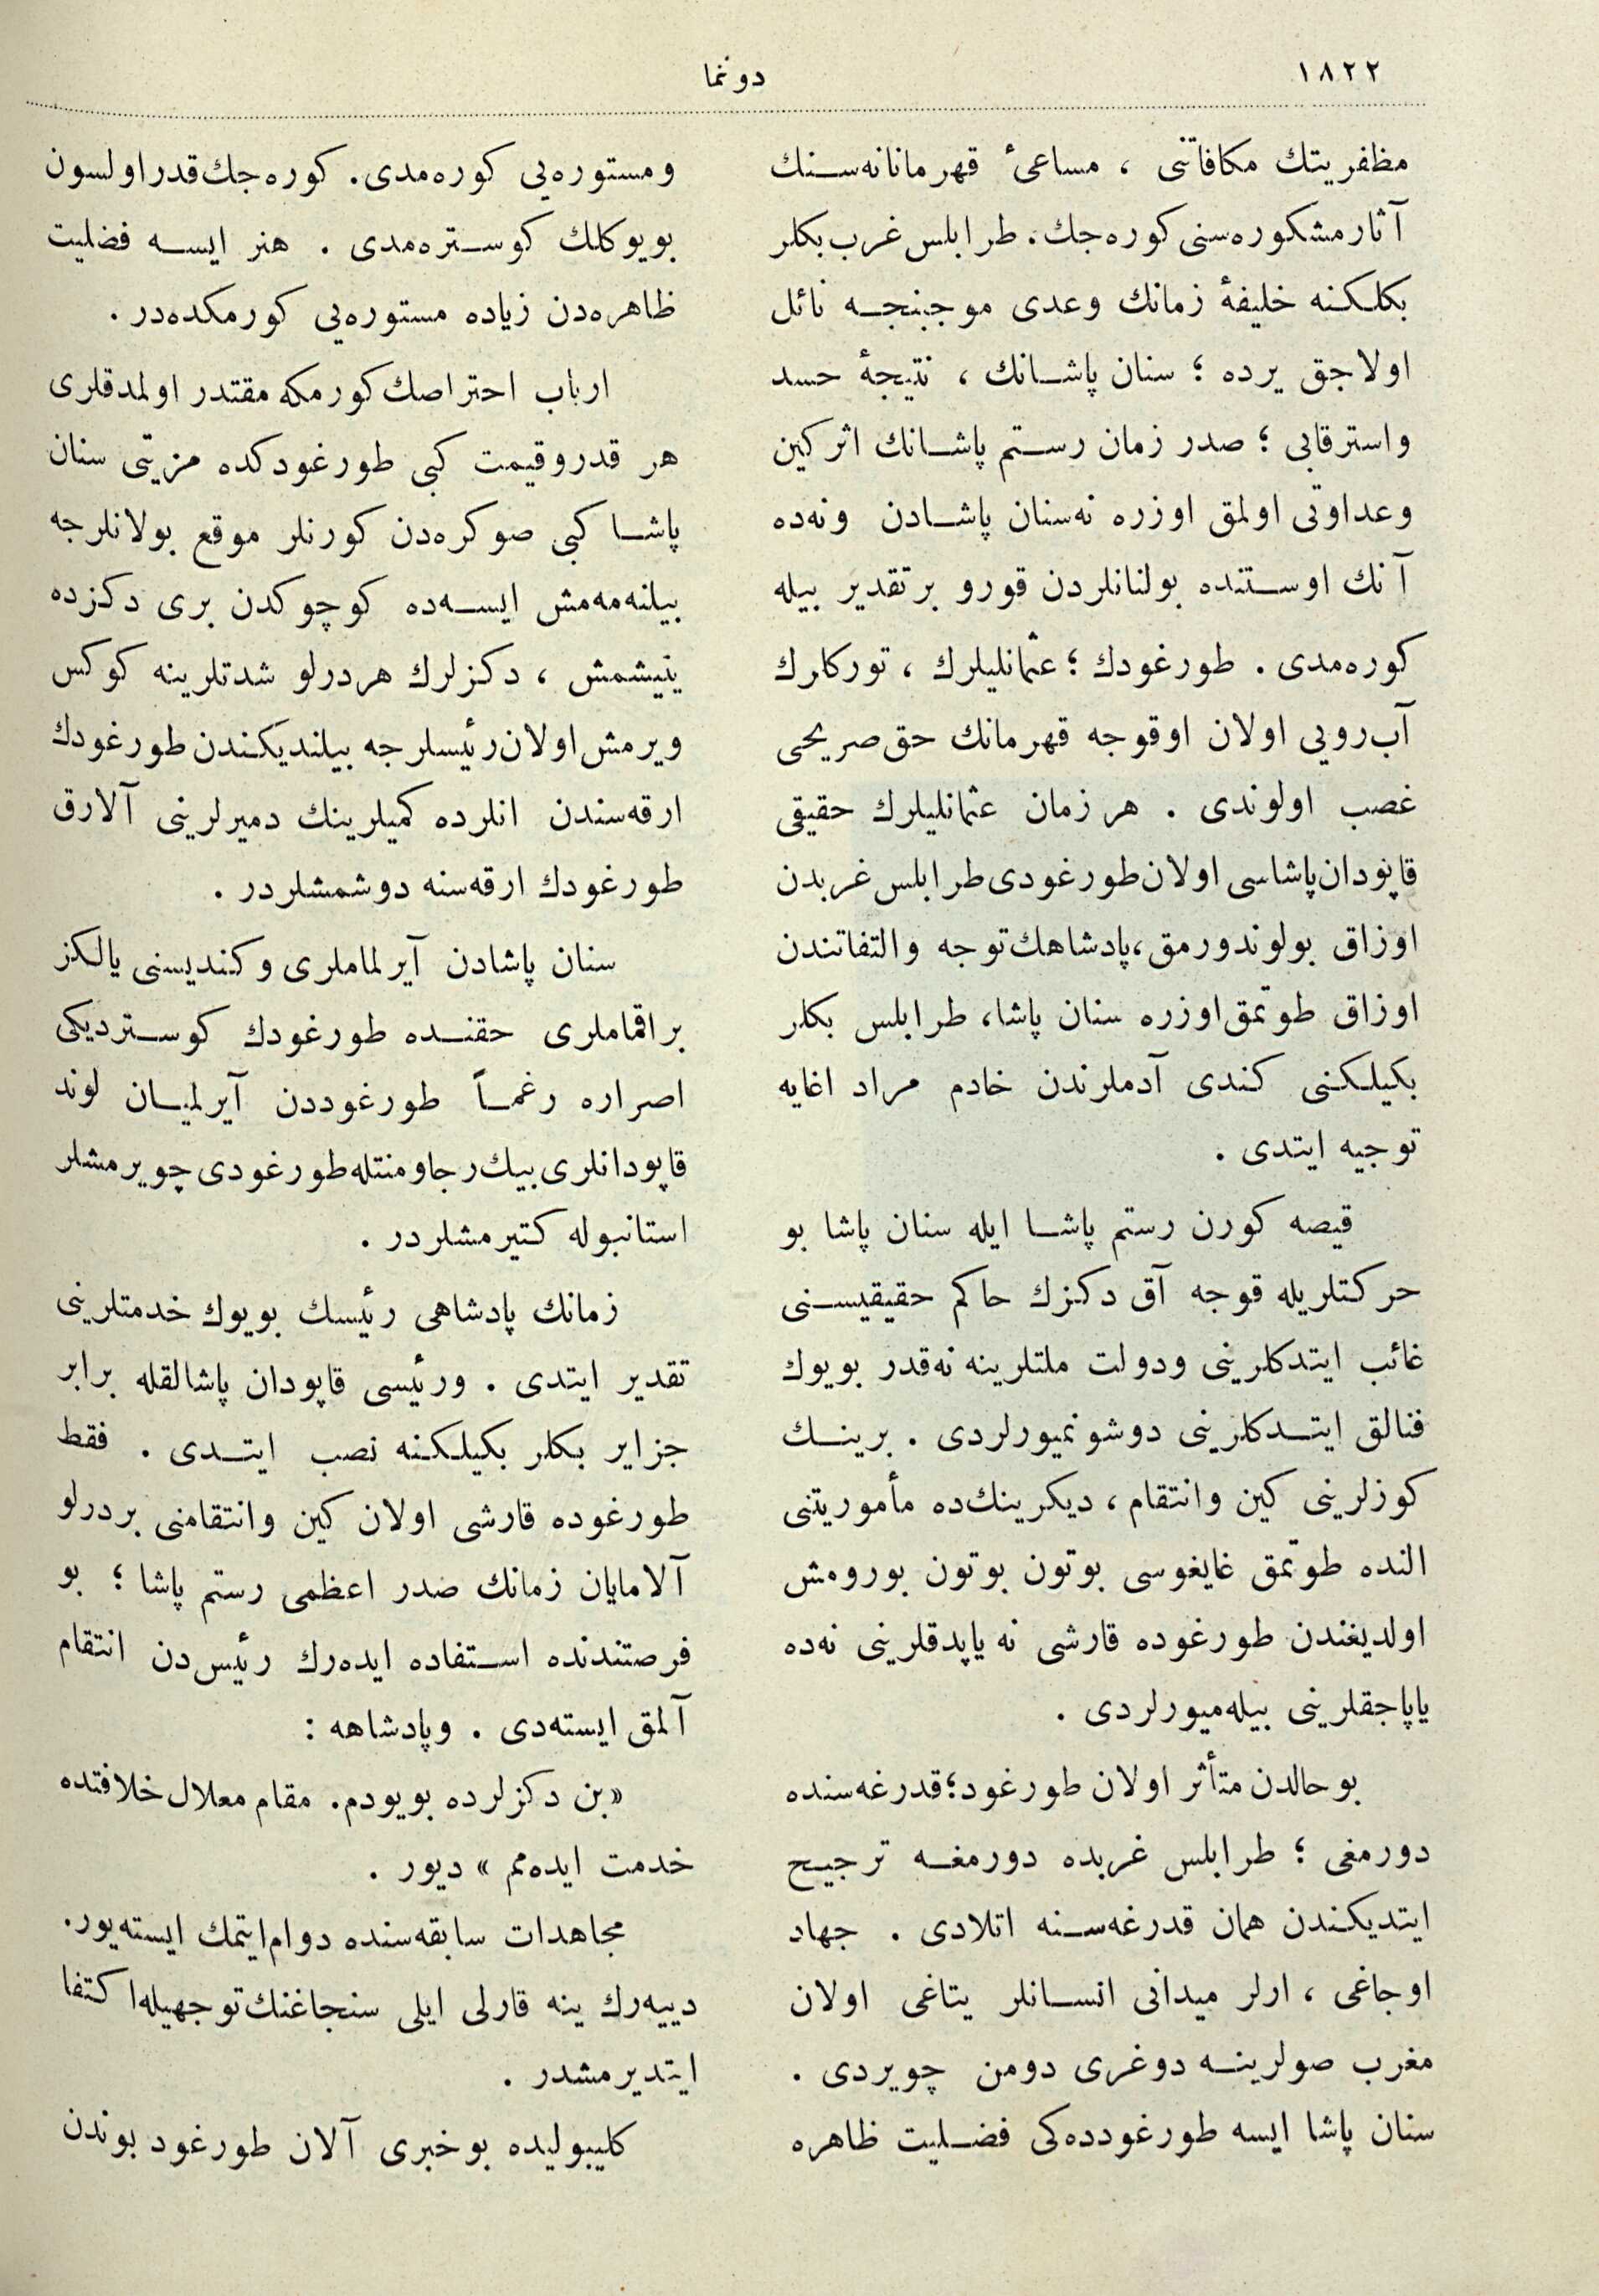 ١٨٢٢
دوننما
مظفريتك مكافاتنى ، مساعىٔ قهرمانانه‌سنك
آثار مشكوره‌سنى كوره‌جك. طرابلس غرب بكلر
بكلكنه خليفهٔ زمانك وعدى موجبنجه نائل
اولاجق يرده ؛ سنان پاشانك ، نتيجهٔ حسد
واسترقابى ؛ صدر زمان رستم پاشانك اثر كين
وعداوتى اولمق اوزره نه‌سنان پاشادن ونه‌ده
آنك اوستنده بولنانلردن قورو بر تقدير بيله
كوره‌مدى . طورغودك ؛ عثمانليلرك ، توركلرك
آب‌رويى اولان اوقوجه قهرمانك حق صريحى
غصب اولوندى . هر زمان عثمانليلرك حقيقى
قاپودان پاشاسى اولان طورغودى طرابلس غربدن
اوزاق بولوندورمق، پادشاهك توجه والتفاتندن
اوزاق طوتمق اوزره سنان پاشا، طرابلس بكلر
بكيلكنى كندى آدملرندن خادم مراد اغايه
توجيه ايتدى .
قيصه كورن رستم پاشا ايله سنان پاشا بو
حركتلريله قوجه آق دكزك حاكم حقيقيسنى
غائب ايتدكلرينى ودولت ملتلرينه نه‌قدر بويوك
فنالق ايتدكلرينى دوشونميورلردى . برينك
كوزلرينى كين وانتقام ، ديكرينك‌ده مأموريتنى
النده طوتمق غايغوسى بوتون بوتون بورومش
اولديغندن طورغوده قارشى نه ياپدقلرينى نه‌ده
ياپاجقلرينى بيله‌ميورلردى .
بو حالدن متأثر اولان طورغود؛ قدرغه‌سنده
دورمغى ؛ طرابلس غربده دورمغه ترجيح
ايتديكندن همان قدرغه‌سنه اتلادى . جهاد
اوجاغى ، ارلر ميدانى انسانلر يتاغى اولان
مغرب صولرينه دوغرى دومن چويردى .
سنان پاشا ايسه طورغودده‌كى فضليت ظاهره
ومستوره‌يى كوره‌مدى. كوره‌جك قدر اولسون
بويوكلك كوستره‌مدى . هنر ايسه فضليت
ظاهره‌دن زياده مستوره‌يى كورمكده‌در .
ارباب احتراصك كورمكه مقتدر اولمدقلرى
هر قدروقيمت كبى طورغودكده مزيتى سنان
پاشا كبى صوكره‌دن كورنلر موقع بولانلرجه
بيلنه‌مه‌مش ايسه‌ده كوچوكدن برى دكزده
يتيشمش ، دكزلرك هردرلو شدتلرينه كوكس
ويرمش اولان رئيسلرجه بيلنديكندن طورغودك
ارقه‌سندن انلرده كميلرينك دميرلرينى آلارق
طورغودك ارقه‌سنه دوشمشلردر .
سنان پاشادن آيرلماملرى وكنديسنى يالكز
براقماملرى حقنده طورغودك كوستردیكى
اصراره رغماً طورغوددن آيرلميان لوند
قاپودانلرى بيك رجاومنتله طورغودى چويرمشلر
استانبوله كتيرمشلردر .
زمانك پادشاهى رئيسك بويوك خدمتلرينى
تقدير ايتدى . ورئيسى قاپودان پاشالقله برابر
جزاير بكلر بكيلكنه نصب ايتدى . فقط
طورغوده قارشى اولان كين وانتقامنى بردرلو
آلامايان زمانك صدر اعظمى رستم پاشا ؛ بو
فرصتندنده استفاده ايده‌رك رئيس‌دن انتقام
آلمق ايسته‌دى . وپادشاهه :
«بن دكزلرده بويودم. مقام معلال خلافتده
خدمت ايده‌مم » ديور .
مجاهدات سابقه‌سنده دوام ايتمك ايسته‌يور.
دييه‌رك ينه قارلى ايلى سنجاغنك توجهيله اكتفا
ايتديرمشدر .
كليبوليده بو خبرى آلان طورغود بوندن